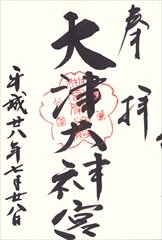 奉拝
大津大神宮
平成廿八年七月廿八日